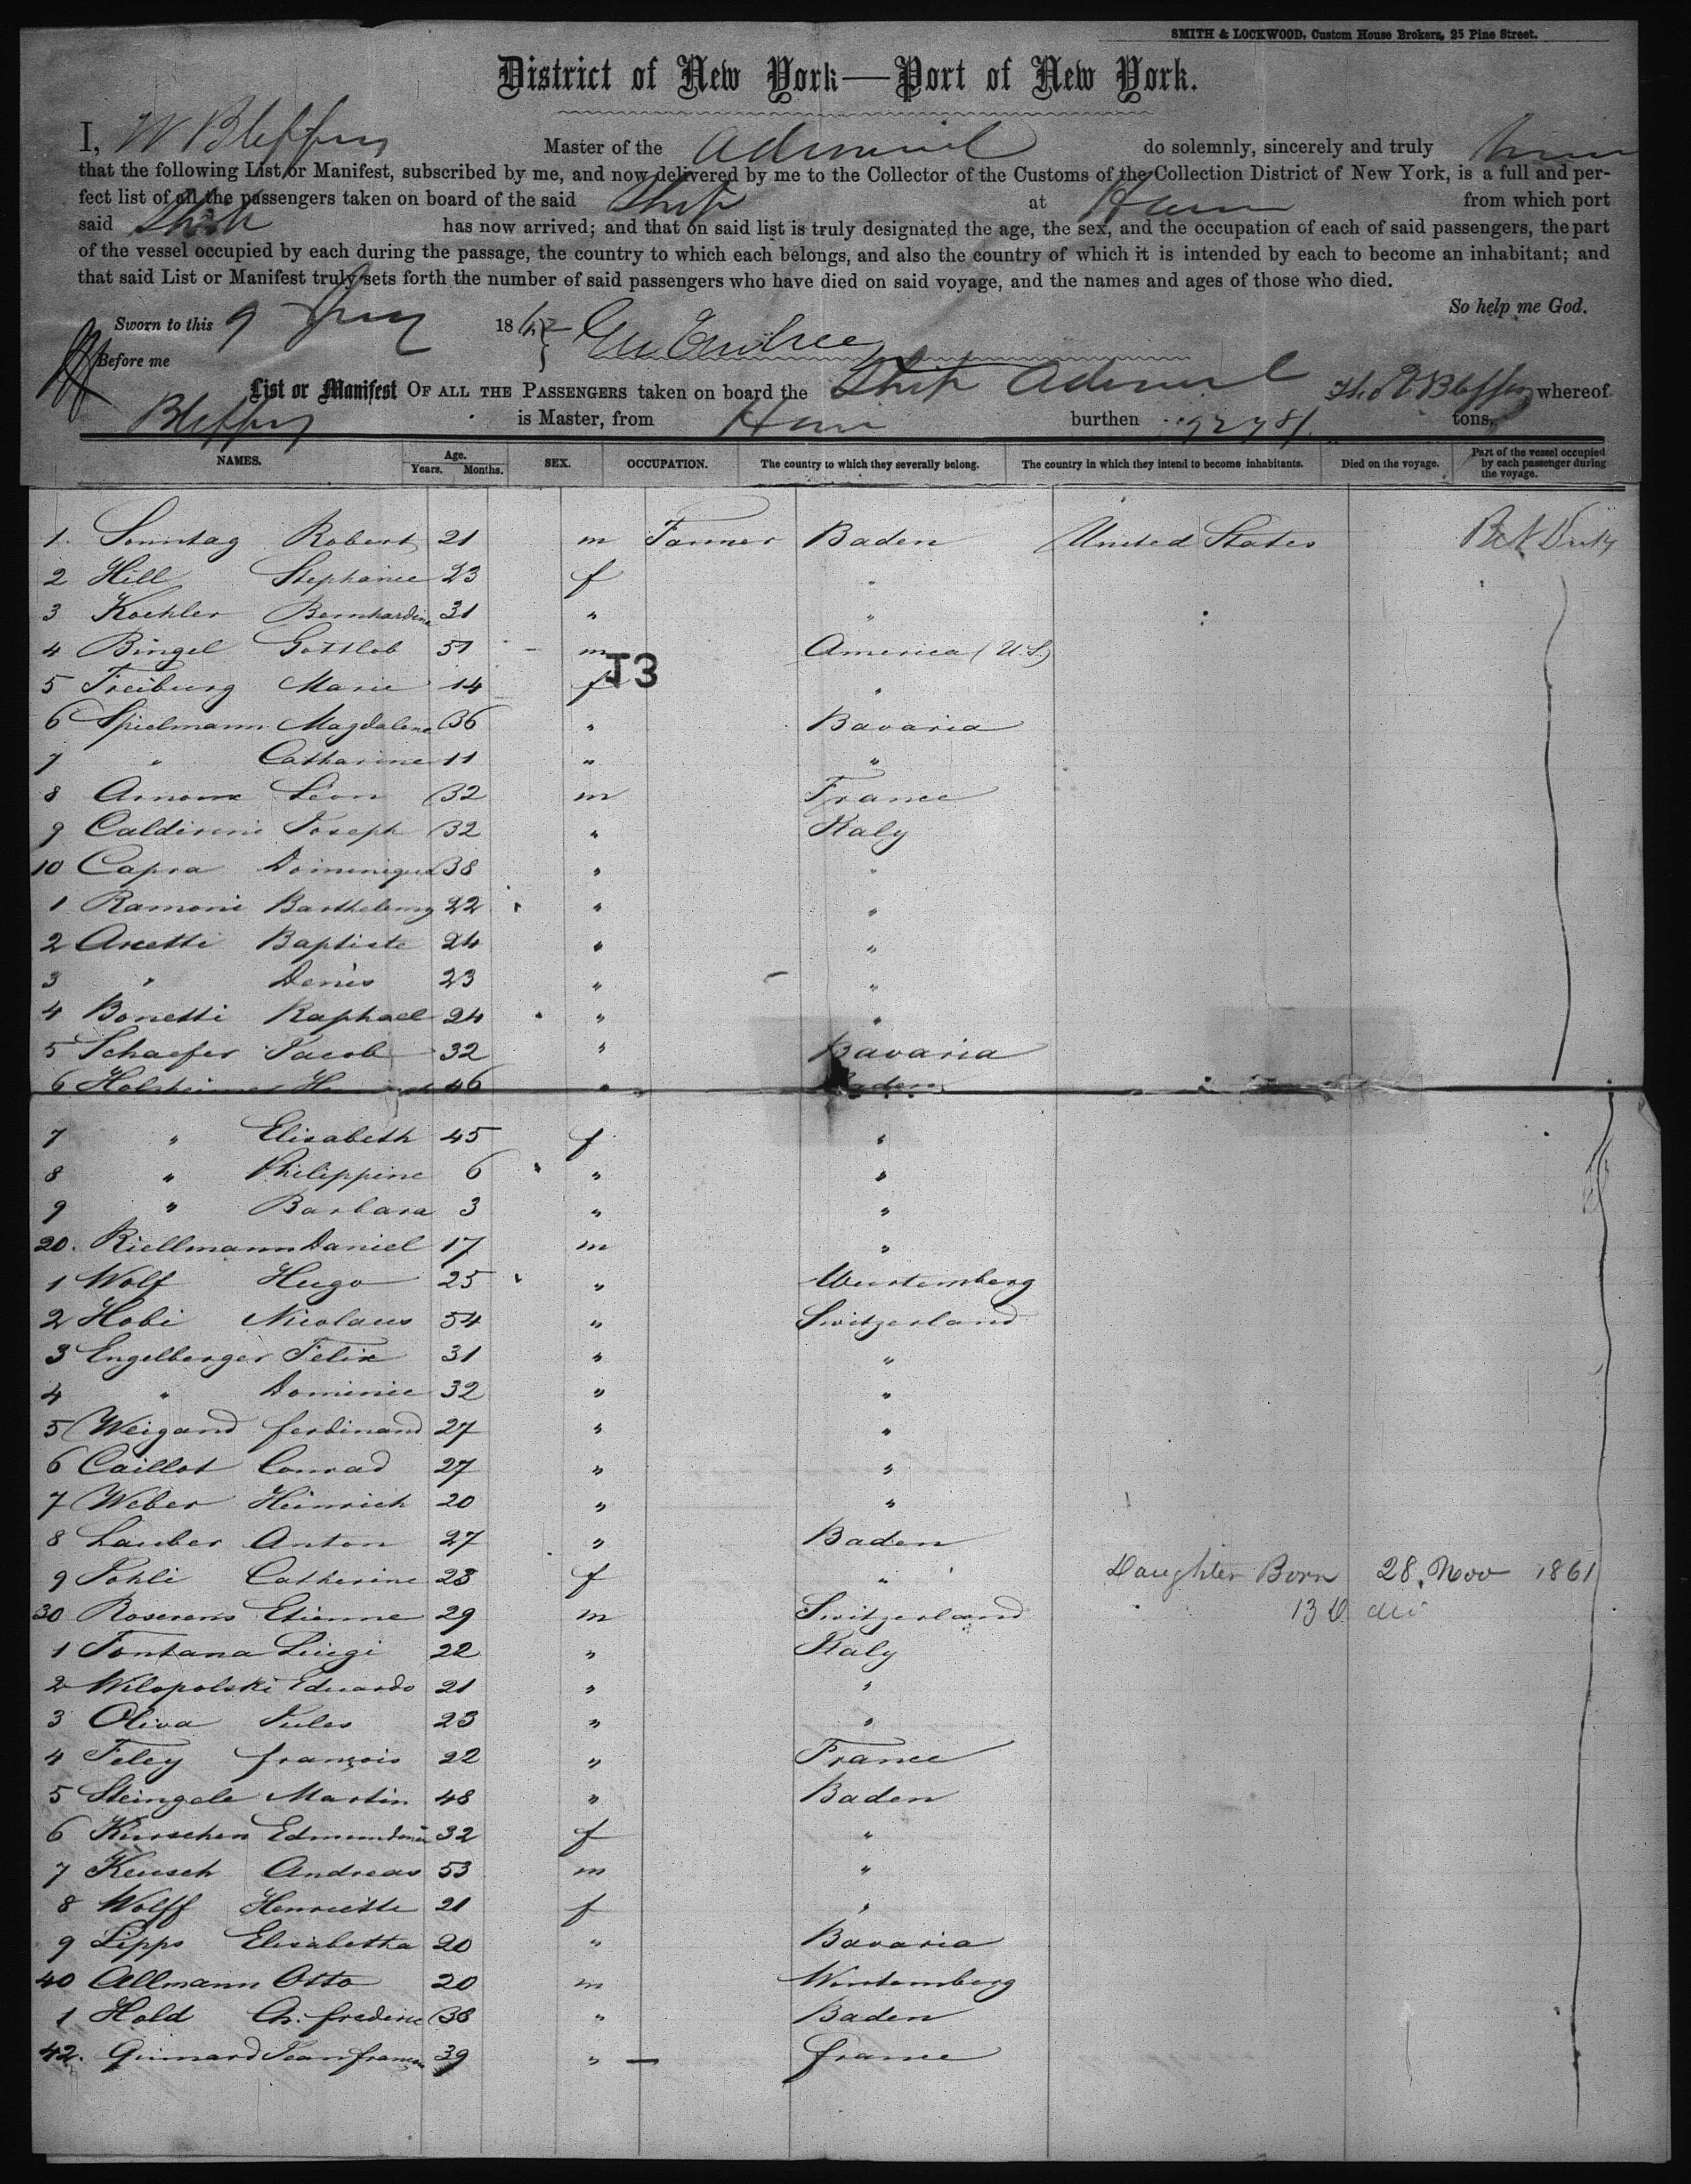 SMITH & LOCKWOOD, Custom House Brokers, 25 Pine Street.
District of New York—Port of New York.
I, W Bleffing Master of the Admiral do solemnly, sincerely and truly
that the following List or Manifest, subscribed by me, and now delivered by me to the Collector of the Customs of the Collection District of New York, is a full and per-
fect list of all the passengers taken on board of the said Ship at Havre from which port
said Ship has now arrived; and that on said list is truly designated the age, the sex, and the occupation of each of said passengers, the part
of the vessel occupied by each during the passage, the country to which each belongs, and also the country of which it is intended by each to become an inhabitant; and
that said List or Manifest truly sets forth the number of said passengers who have died on said voyage, and the names and ages of those who died.
So help me God.
Sworn to this 9 186
Before me
List or Manifest OF ALL THE PASSENGERS taken on board the Ship Admiral whereof
is Master, from Havre burthen tons,
NAMES. Age. Years. Months. SEX. OCCUPATION. The country to which they severally belong. The country in which they intend to become inhabitants. Died on the voyage. Part of the vessel occupied by each passenger during the voyage.
1. Sonntag Robert 21 m Farmer Baden United States
2 Hill Stephanie 23 f "
3 Koehler Bernhardine 31 " "
4 Bingel Gottlob 51 m America (U.S.)
J3
5 Freiburg Marie 14 f "
6 Spielmann Magdalena 36 " Bavaria
7 " Catharine 11 " "
8 Arnoux Léon 32 m France
9 Joseph 32 " Italy
10 Capra Dominique 38 " "
1 Ramoni Barthelemy 22 " "
2 Aretti Baptiste 24 " "
3 " Denis 23 " "
4 Bonetti Raphael 24 " "
5 Schaefer Jacob 32 " Bavaria
6 46 " Baden
7 " Elisabeth 45 f "
8 " Philippine 6 " "
9 " Barbara 3 " "
20. Riellmann Daniel 17 m "
1 Wolf Hugo 25 " Wurtemberg
2 Hobi Nicolaus 54 " Switzerland
3 Engelberger Felix 31 " "
4 " Dominic 32 " "
5 Weigand ferdinand 27 " "
6 Caillot Conrad 27 " "
7 Weber Heinrich 20 " "
8 Lauber Anton 27 " Baden
9 Sohli Catherine 23 f " Daughter Born 28. Nov 1861
30 Roserens Etienne 29 m Switzerland 13
1 Fontana Luigi 22 " Italy
2 Wilopolski Eduardo 21 " "
3 Oliva Jules 23 " "
4 Feley françois 22 " France
5 Steingele Martin 48 " Baden
6 Kurschen 32 f "
7 Keusch Andreas 53 m "
8 Wolff Henriette 21 f "
9 Lipps Elisabetha 20 " Bavaria
40 Allmann Otto 20 m Wurtemberg
1 Hold Ch. frederic 38 " Baden
42. Guinard Jean 39 " france